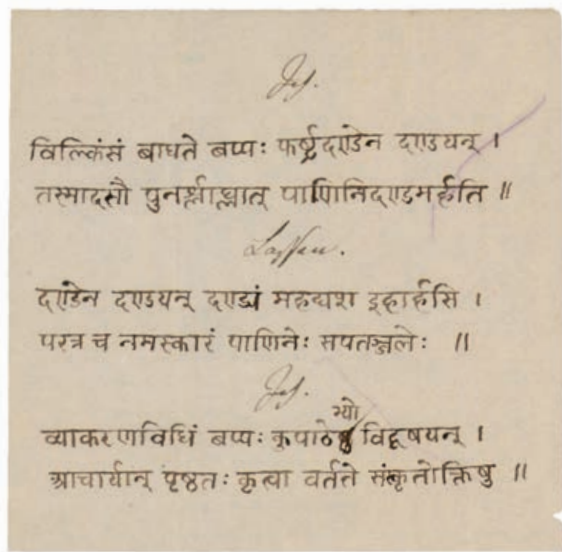 विल्किंसं बाधते बप्पः फर्ष्टदण्डेन दण्डयन् ।
तस्मादसौ पाणिनिदण्डमर्हति ॥
Lassen.
दण्डेन दण्डयन् दण्ड्यं महद्यश इहार्हसि ।
परत्र च नमस्कारं पाणिनेः सपतञ्जलेः ॥
व्याकरणविधिं बप्पः विदूषयन् ।
आचार्यान् पृष्ठतः कृत्वा वर्तते संकृतोक्तिषु ॥